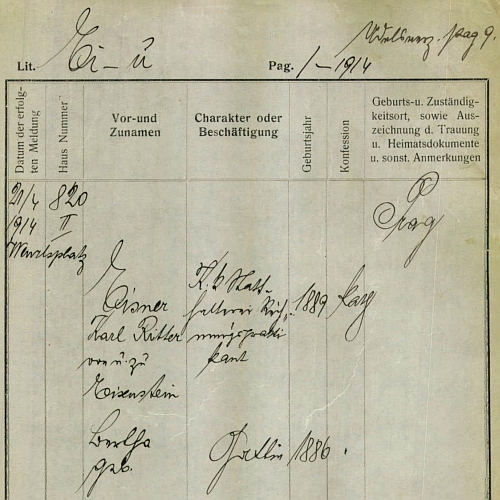 Adelsverz. pag 9.
Lit. Ei – ü Pag. 1 – 1914
Datum der erfolg-
ten Meldung
Haus Nummer
Vor- und
Zunamen
Charakter oder
Beschäftigung
Geburtsjahr
Konfession
Geburts- u. Zuständig-
keitsort, sowie Aus-
zeichnung d. Trauung
u. Heimatsdokumente
u. sonst. Anmerkungen
21/4 820
1914 II
Prag
Eisner
Karl Ritter
von u. zu
Eisenstein
K. k. Statt-
halterei Rech-
nungsprakti
kant
1889
Bertha
geb.
Gattin 1886